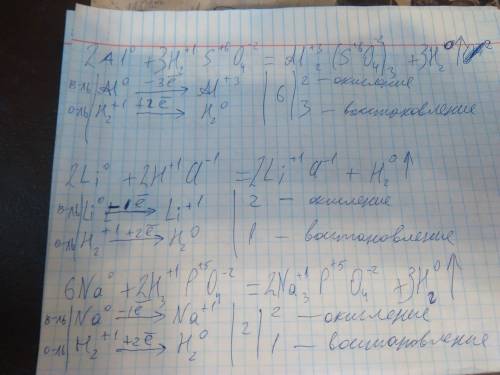 2Al⁰ + 3H₂⁺¹S⁺⁶O₄⁻² = Al₂⁺³(S⁺⁶O₄⁻²)₃ + 3H₂⁰↑
в-ль | Al⁰ −3ē → Al⁺³ | 6 | 2 – окисление
о-ль | H₂⁺¹ +2ē → H₂⁰ | 3 – востановление
2Li⁰ + 2H⁺¹Cl⁻¹ = 2Li⁺¹Cl⁻¹ + H₂⁰↑
в-ль | Li⁰ −1ē → Li⁺¹ | 2 – окисление
о-ль | H₂⁺¹ +2ē → H₂⁰ | 1 – востановление
6Na⁰ + 2H₃⁺¹P⁺⁵O₄⁻² = 2Na₃⁺¹P⁺⁵O₄⁻² + 3H₂⁰↑
в-ль | Na⁰ −1ē → Na⁺¹ | 2 | 2 – окисление
о-ль | H₂⁺¹ +2ē → H₂⁰ | 1 – востановление